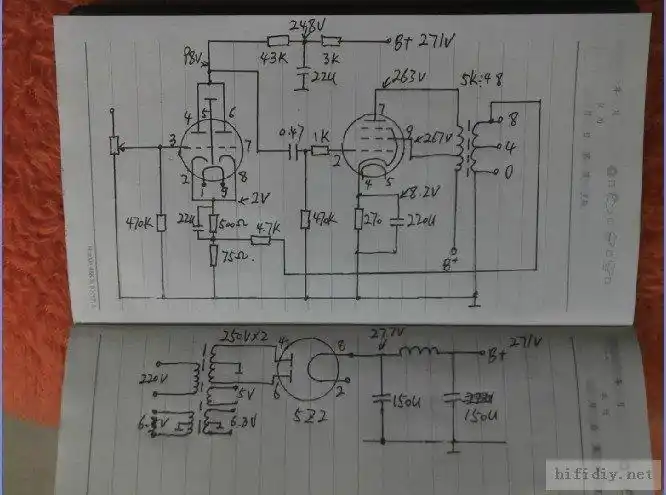 248V
B+ 271V
98V
43K
3K
22U
263V
5K:48
4
5
6
8
0.47
1K
7
3
7
2
9
267V
4
2
1
9
8
4
5
0
2V
8.2V
470K
22U
500Ω
4.7K
470K
270
220U
75Ω.
B+
250V×2
4
8
277V
271V
B+
220V
5V
6
2
150U
5Z2
150U
6.3V
hifidiy.net